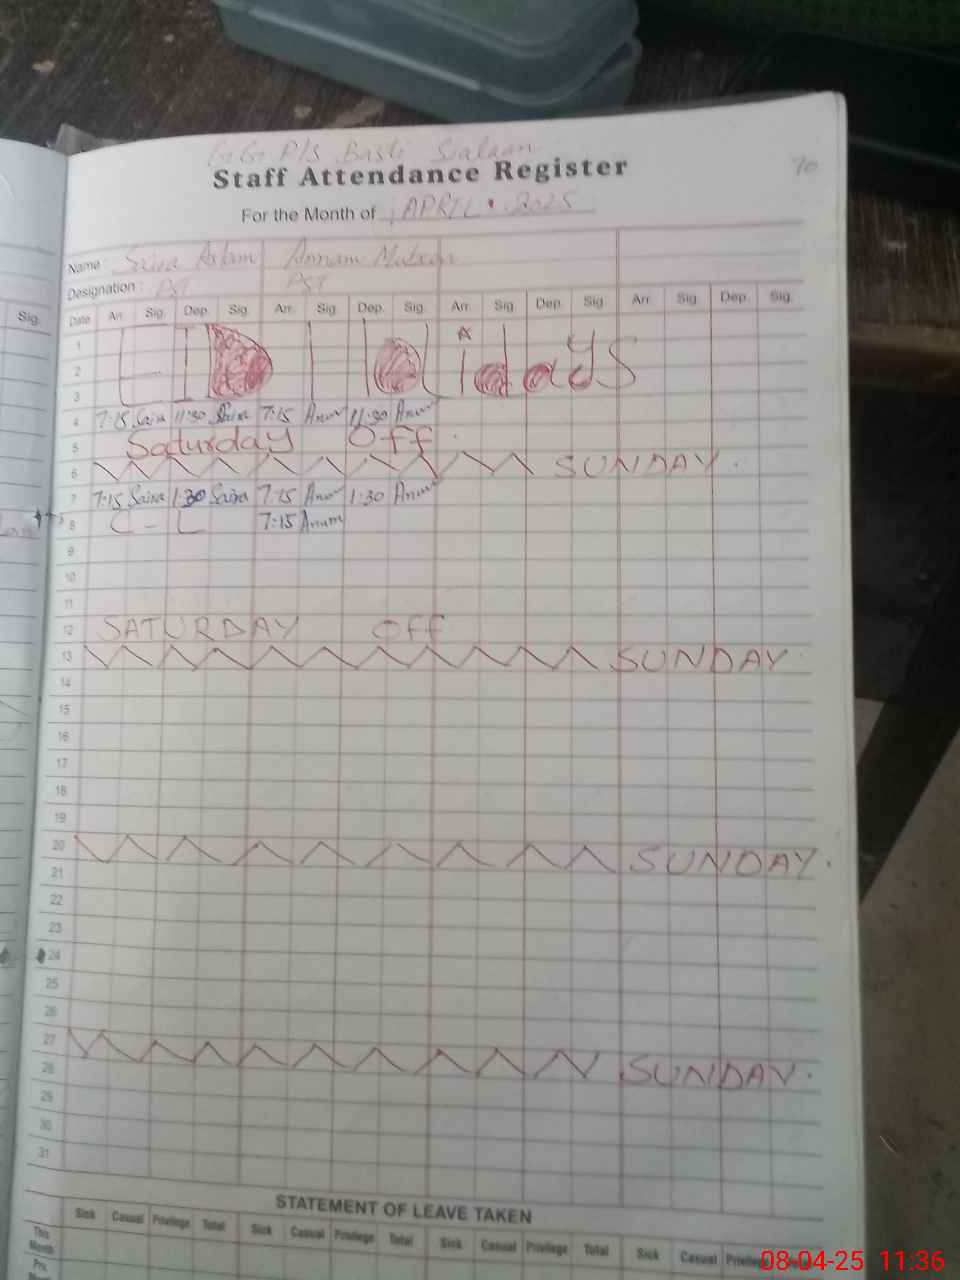 G.G. P/S Basti Sialaan
70
Staff Attendance Register
For the Month of APRIL . 2025
Name : Saira Aslam Annam
Designation : PST PST
Sig.
Date Arr. Sig. Dep. Sig. Arr. Sig. Dep. Sig. Arr. Sig. Dep. Sig. Arr. Sig. Dep. Sig.
1
2 EID Holidays
3
4 7:15 Saira 11:30 Saira 7:15 Anum 11:30 Anum
5 Saturday Off
6 SUNDAY.
7 7:15 Saira 1:30 Saira 7:15 Anum 1:30 Anum
8 C - L 7:15 Anum
9
10
11
12 SATURDAY Off
13 SUNDAY.
14
15
16
17
18
19
20 SUNDAY.
21
22
23
24
25
26
27
28 SUNDAY.
29
30
31
STATEMENT OF LEAVE TAKEN
Sick Casual Privilege Total Sick Casual Privilege Total Sick Casual Privilege Total Sick Casual
This Month
Pre.
08-04-25 11:36